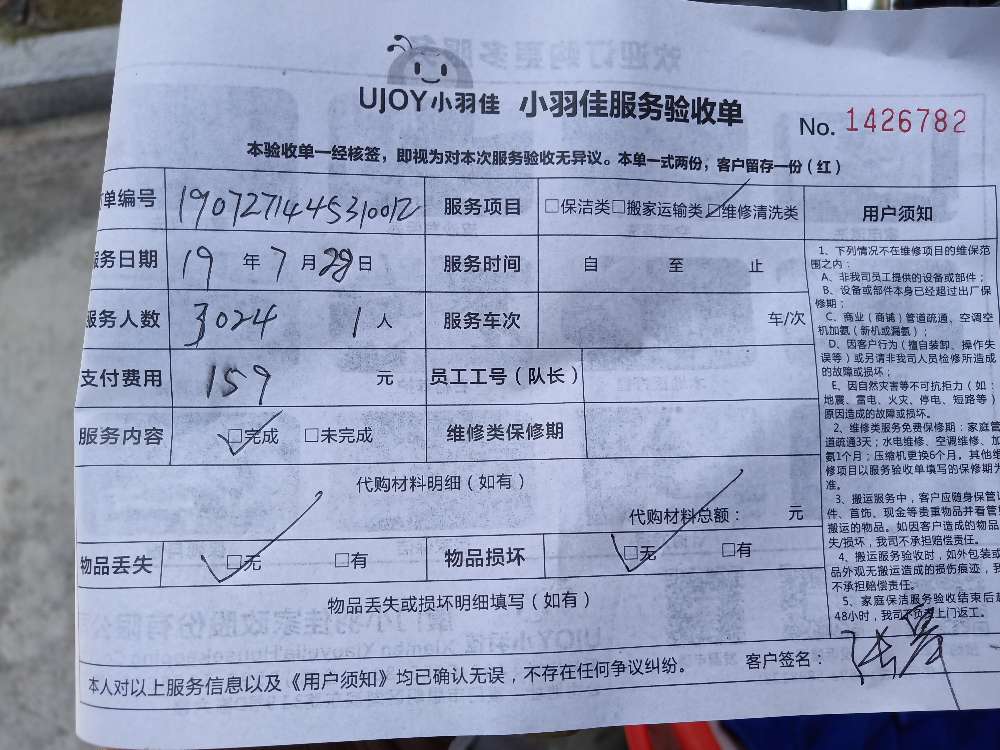 UJOY小羽佳 小羽佳服务验收单
No. 1426782
本验收单一经核签，即视为对本次服务验收无异议。本单一式两份，客户留存一份（红）
单编号 1907271445310012 服务项目 □保洁类□搬家运输类☑维修清洗类 用户须知
服务日期 19 年 7 月 28 日 服务时间 自 至 止
服务人数 3024 1 人 服务车次 车/次
支付费用 159 元 员工工号（队长）
服务内容 ☑完成 □未完成 维修类保修期
代购材料明细（如有）
代购材料总额： 元
物品丢失 ☑无 □有 物品损坏 ☑无 □有
物品丢失或损坏明细填写（如有）
本人对以上服务信息以及《用户须知》均已确认无误，不存在任何争议纠纷。 客户签名：
1、下列情况不在维修项目的维保范
围之内：
A、非我司员工提供的设备或部件；
B、设备或部件本身已经超过出厂保
修期；
C、商业（商铺）管道疏通、空调空
机加氨（新机或漏氨）；
D、因客户行为（擅自装卸、操作失
误等）或另请非我司人员检修所造成
的故障或损坏；
E、因自然灾害等不可抗拒力（如：
地震、雷电、火灾、停电、短路等）
原因造成的故障或损坏。
2、维修类服务免费保修期：家庭管
道疏通3天；水电维修、空调维修、加
氨1个月；压缩机更换6个月。其他维
修项目以服务验收单填写的保修期为
准。
3、搬运服务中，客户应随身保管
件、首饰、现金等贵重物品并看管
搬运的物品。如因客户造成的物品
失/损坏，我司不承担赔偿责任。
4、搬运服务验收时，如外包装或
品外观无搬运造成的损伤痕迹，我
不承担赔偿责任。
5、家庭保洁服务验收结束后超
48小时，我司不负责上门返工。